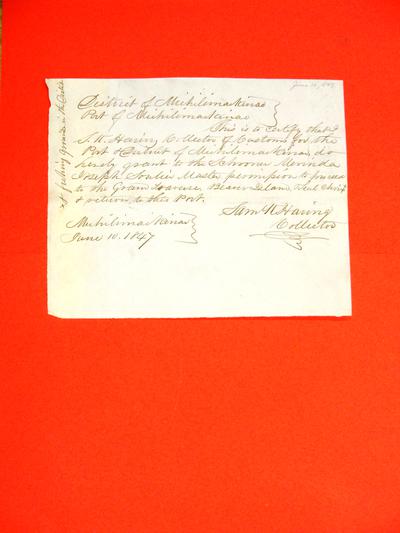 June 10, 1847
District of Michilimackinac
Port of Michilimackinac
This is to certify that I
S. W. Haring Collector of Customs for the
Port & District of Michilimackinac do
hereby grant to the Schooner Merinda
Joseph Master permission to proceed
to the Grand Traverse, Beaver Island,
& return to this Port.
Sam W Haring
Collector
Michilimackinac
June 10. 1847
& fishing grounds in the